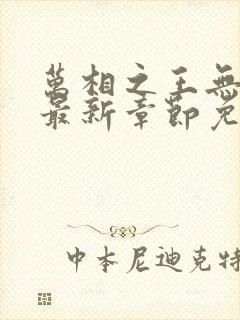 萬相之王無
最新章節免
中本尼迪克特